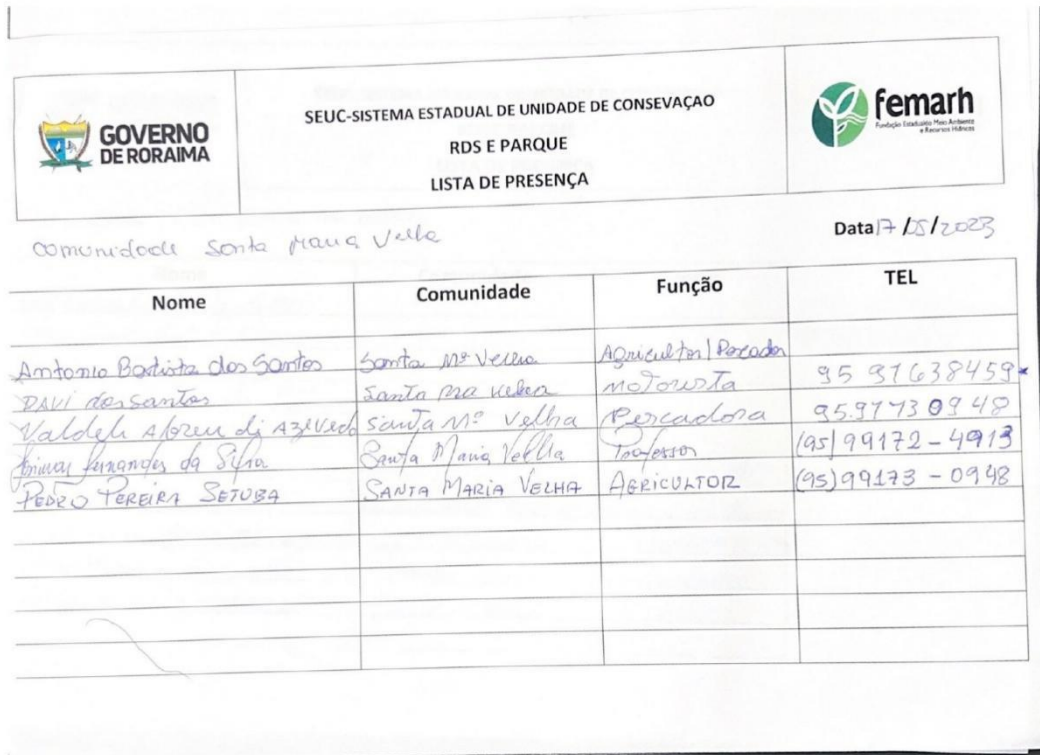 GOVERNO
DE RORAIMA
SEUC-SISTEMA ESTADUAL DE UNIDADE DE CONSEVAÇAO
RDS E PARQUE
LISTA DE PRESENÇA
femarh
Fundação Estadual do Meio Ambiente
e Recursos Hídricos
comunidade Santa Maria Velha
Data 17/05/2023
Nome Comunidade Função TEL
Antonio Batista dos Santos Santa Mª Velha Agricultor/Pescador
DAVI dos Santos Santa Mª Velha motorista 95 91638459
Valdeli Abreu di Azevedo Santa Mª Velha Pescadora 95.9773 0948
Fernandes da Silva Santa Maria Velha Professor (95) 99172-4913
PEDRO PEREIRA SETUBA SANTA MARIA VELHA AGRICULTOR (95) 99173-0948